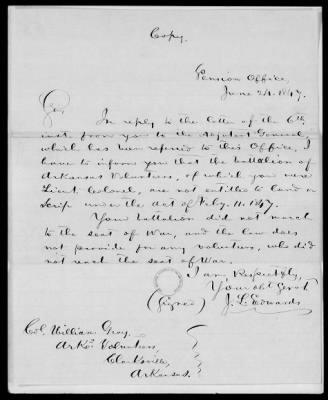 Copy.
Pension Office,
June 24. 1847.
Sir
In reply to the letter of the 6th
inst. from you to the Adjutant General,
which has been referred to this Office, I
have to inform you that the battalion of
Arkansas Volunteers, of which you were
Lieut. Colonel, are not entitled to land or
Scrip under the Act of Feby. 11. 1847.
Your battalion did not march
to the seat of War, and the law does
not provide for any volunteers, who did
not reach the seat of War.
I am, Respectfully,
Your obt Servt
(Signed) J. L. Edwards
Col. William Gray,
Arks. Volunteers,
Clarksville,
Arkansas.